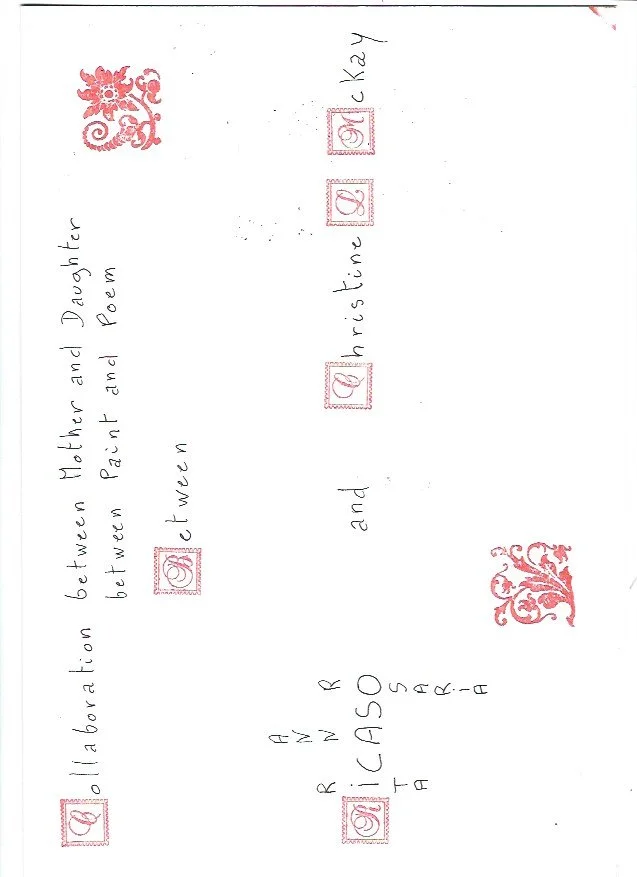 Collaboration between Mother and Daughter
between Paint and Poem
Between
A
N
R N R
RiCASO and Christine L McKay
T S
A A
R
I
A